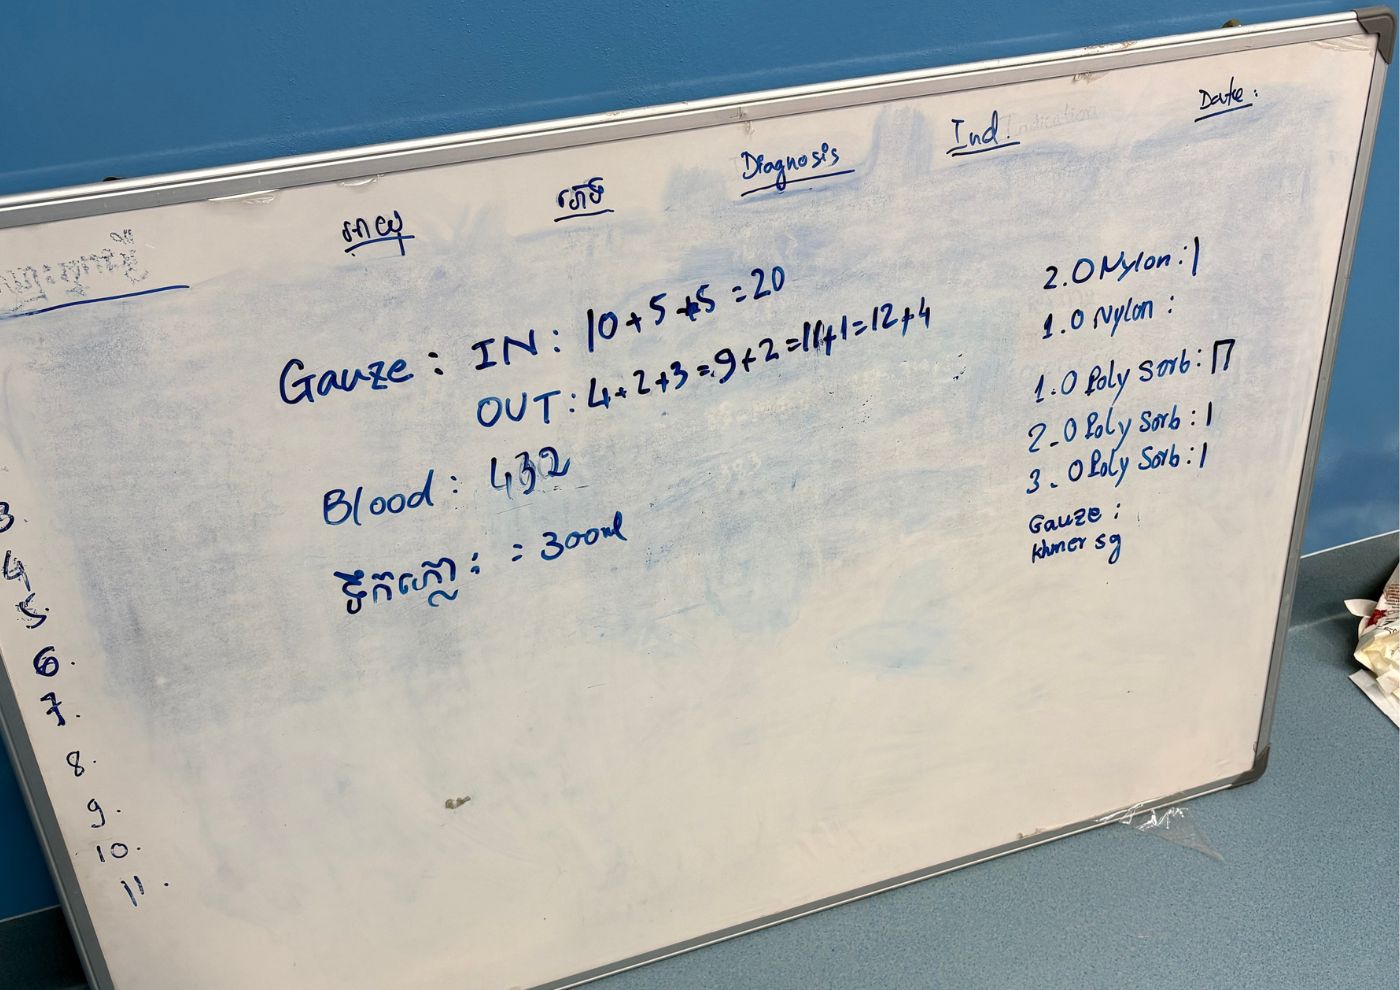 អាយុ ភេទ Diagnosis Ind. Date:
Gauze: IN: 10+5+5=20
OUT: 4+2+3=9+2=11+1=12+4
Blood: 432
ទឹកភ្លោះ: = 300ml
2.0 Nylon: |
1.0 Nylon:
1.0 Poly Sorb: Π
2-0 Poly Sorb: |
3-0 Poly Sorb: |
Gauze:
khmer sg
3.
4
5.
6.
7.
8.
9.
10.
11.